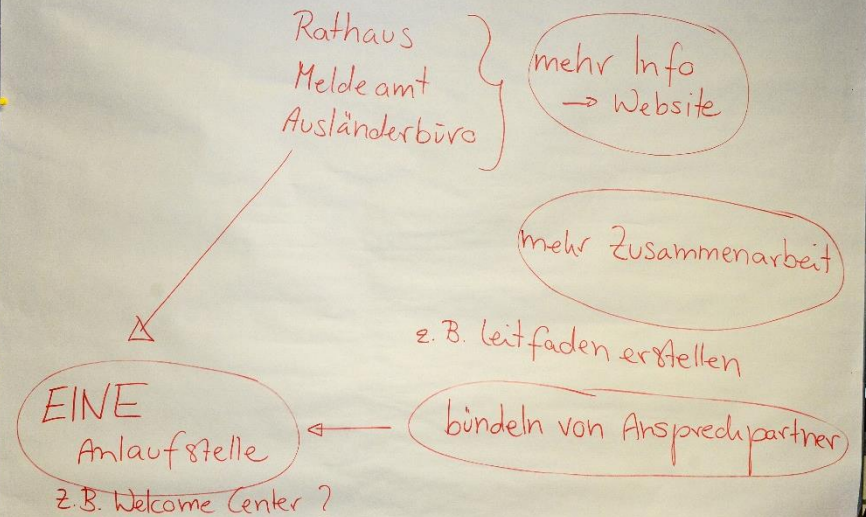 Rathaus
Meldeamt
Ausländerbüro
mehr Info
→ Website
mehr Zusammenarbeit
z. B. Leitfaden erstellen
bündeln von Ansprechpartner
EINE
Anlaufstelle
z.B. Welcome Center ?